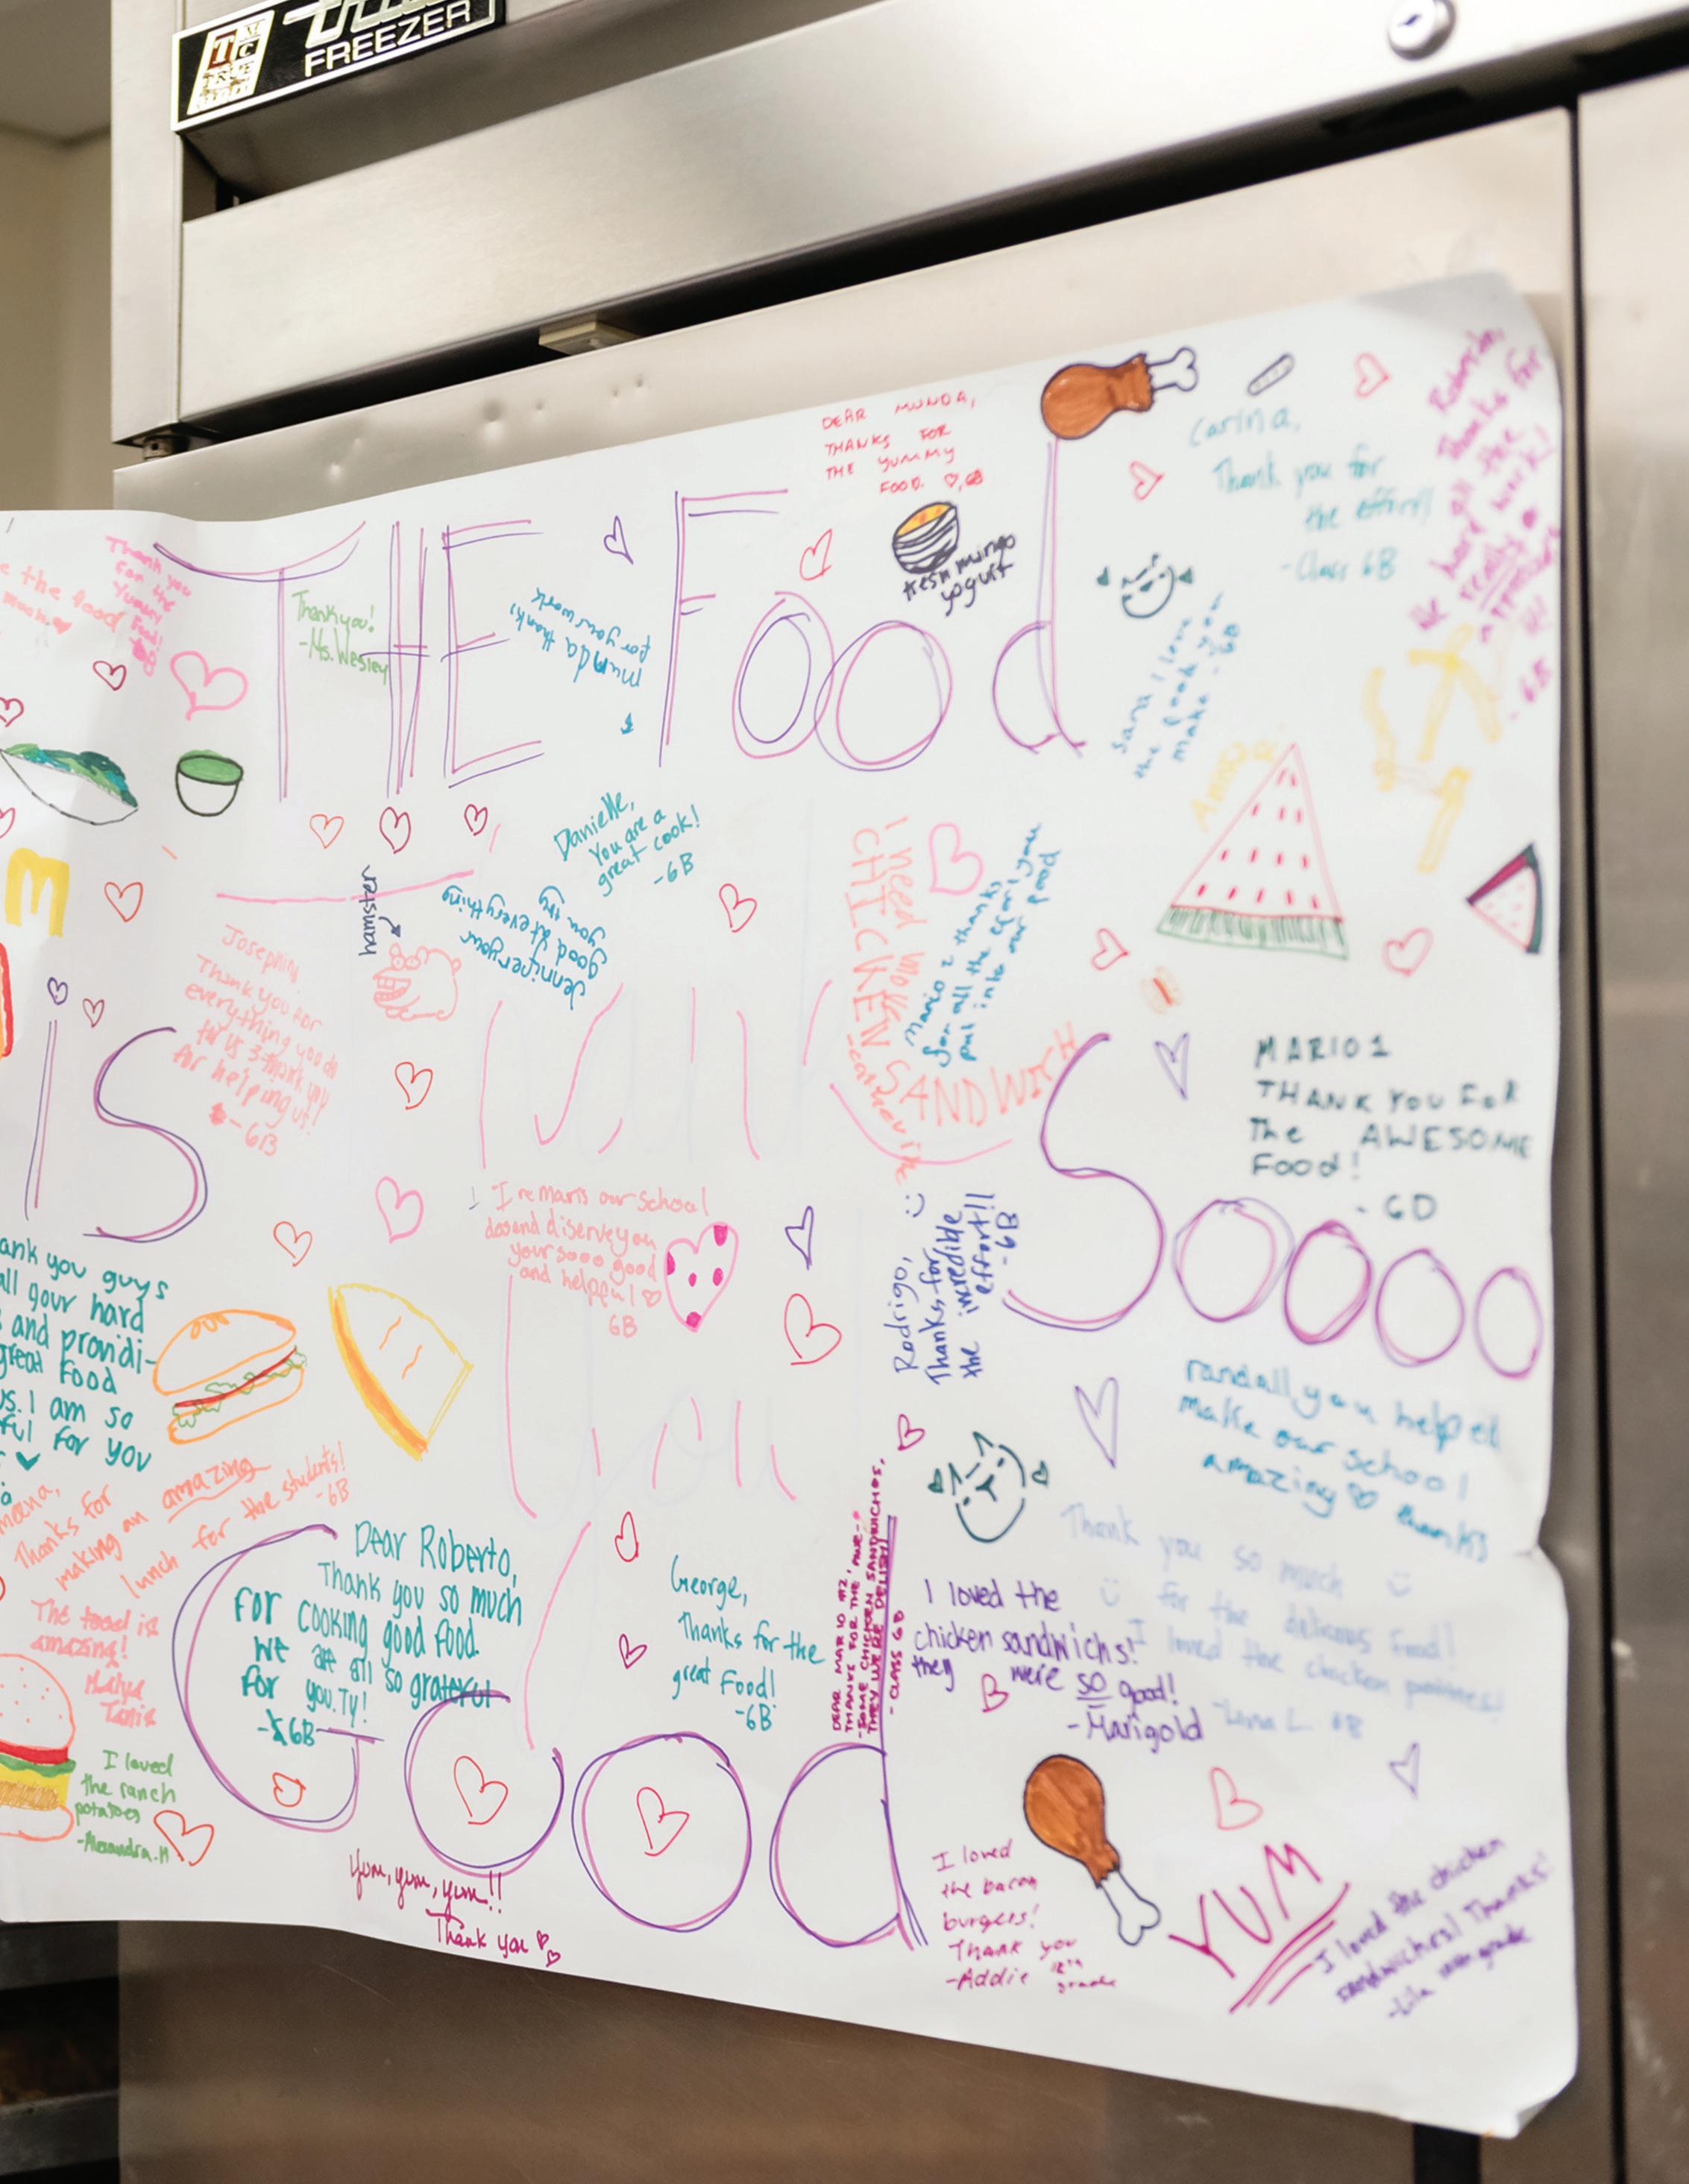 true
FREEZER
T M
C
TRUE
DEAR MUNDA,
THANKS FOR
THE YUMMY
FOOD. ♡, 6B
Carina,
Thank you for
the effort!!
- Class 6B
Thanks for
all the
hard work!
really
- 6B
THE Food
e the food
Thank you
for the
Yummy
food!
6B
Thank you!
- Ms. Wesley
munda thanks
for your work
fresh mango
yogurt
Sara I love
the food you
make - 6B
Danielle,
You are a
great cook!
-6B
hamster
Jennifer your
good at everything
you try
I need more
CHICKEN SANDWICH
-catherine
Mario 2 thanks
for all the effort you
put into our food
Josephin,
Thank you for
everything you do
for us 3 thank you
for helping us!
- 6B
MARIO 1
THANK YOU FOR
The AWESOME
Food!
- 6D
is
Thank
You
Soooo
our school
dosend diserve you
your sooo good
and helpful ♡
6B
Rodrigo,
Thanks for
the incredible
effort!!
-6B
ank you guys
all your hard
and providi-
great food
us. I am so
ful for you
randall you helped
make our school
amazing ♡ thanks
meena,
Thanks for
making an amazing
lunch for the students!
-6B
Dear Roberto,
Thank you so much
For cooking good food.
We are all so grateful
For you. Ty!
- 6B
George,
Thanks for the
great Food!
-6B
DEAR MARIO #2,
THANKS FOR THE AWE-
SOME CHICKEN SANDWICHES,
THEY WERE DELISH!
- CLASS 6B
Thank you so much
for the delicious food!
I loved the chicken patties!
- Luna L. 6B
I loved the
chicken sandwichs!
they were so good!
- Marigold
The food is
amazing!
I loved
the ranch
potatoes
-Alexandra.H
Good
Yum, yum, yum!!
Thank you
I loved
the bacon
burgers!
Thank you
-Addie 12th
grade
YUM
I loved the chicken
sandwiches! Thanks!
-Lila grade